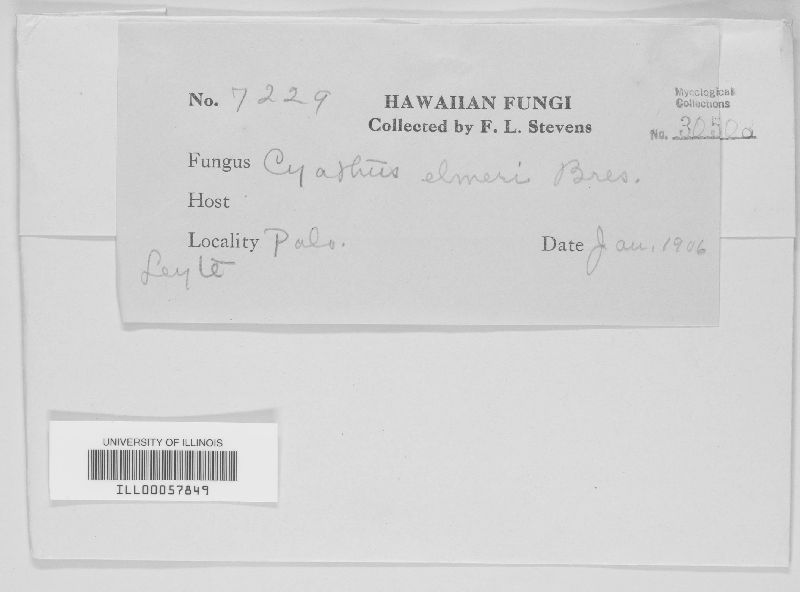 No. 7229
HAWAIIAN FUNGI
Collected by F. L. Stevens
Mycological
Collections
No. 30508
Fungus Cyathus elmeri Bres.
Host
Locality Palo.
Date Jan. 1906
Leyte
UNIVERSITY OF ILLINOIS
ILL00057849